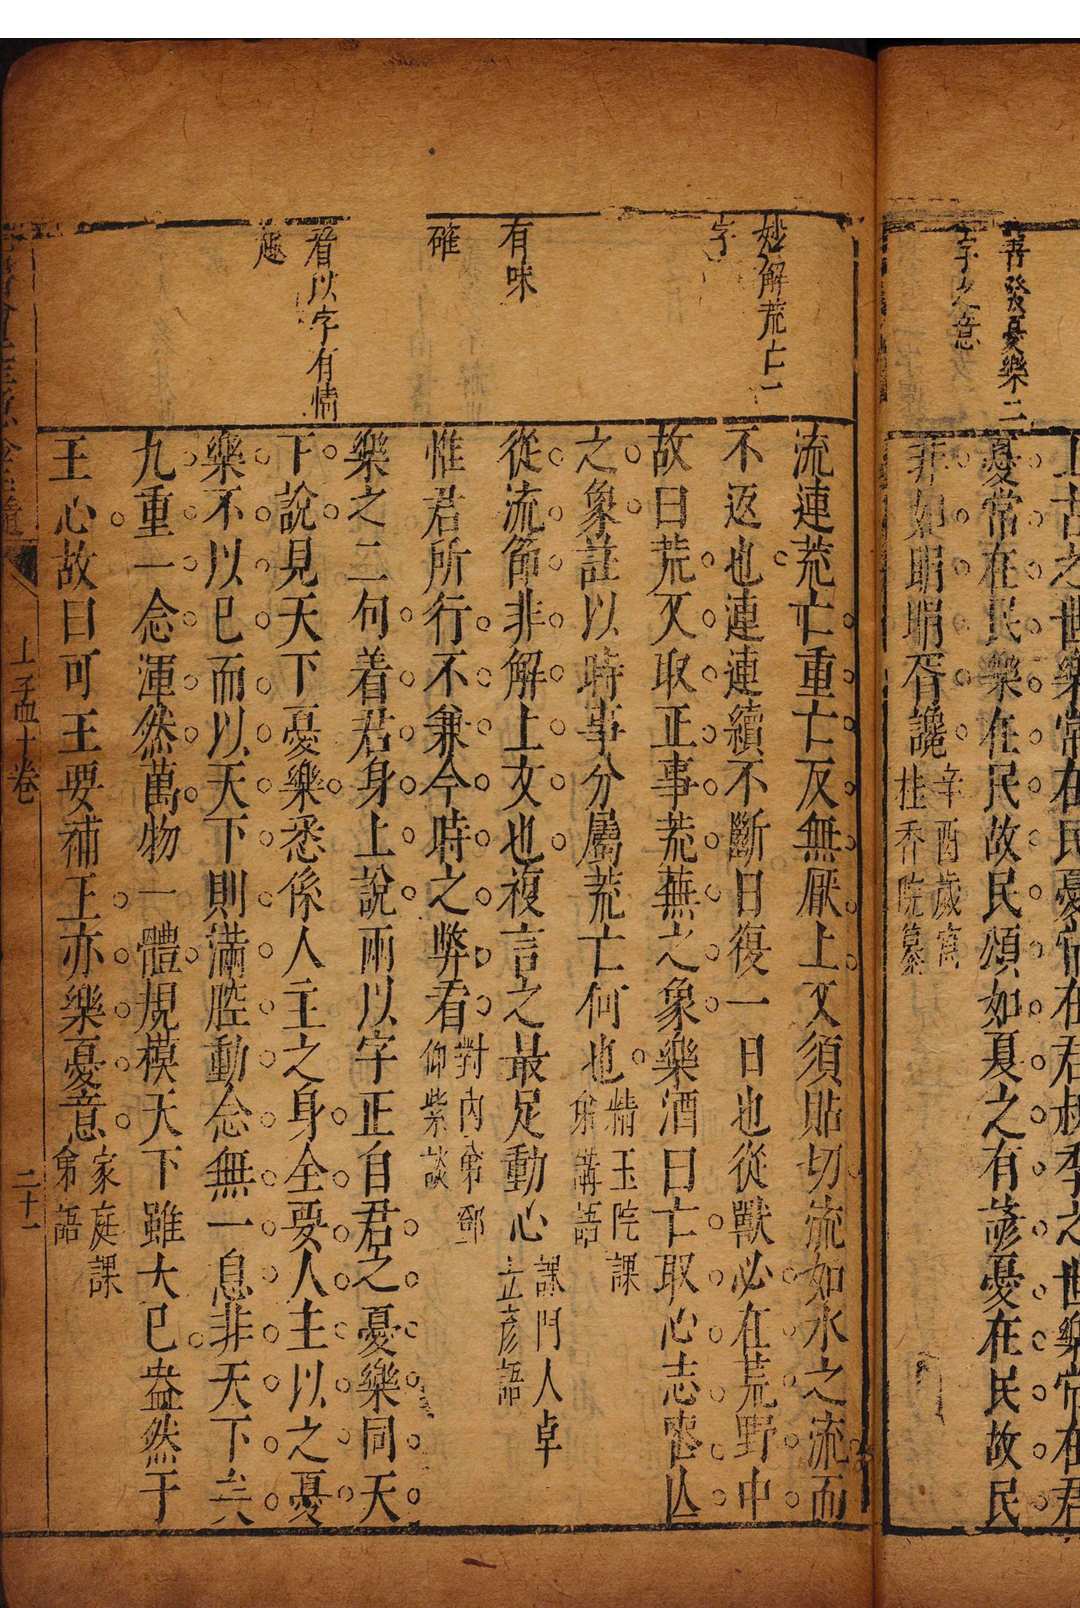 善發憂樂二
字之意
上古之世樂常在民憂常在君叔季之世樂常在君
憂常在民樂在民故民頌如夏之有諺憂在民故民
非如睊睊胥讒
辛酉歲寓
桂香院纂
妙解荒亡二
字
有味
確
看以字有情
趣
流連荒亡重亡反無厭上文須貼切流如水之流而
不返也連連續不斷日復一日也從獸必在荒野中
故曰荒又取正事荒蕪之象樂酒曰亡取心志喪亡
之象註以時事分屬荒亡何也
精玉院課
弟講語
從流節非解上文也複言之最足動心
課門人卓
立彥語
惟君所行不兼今時之弊看
對內弟鄒
仰紫談
樂之二句着君身上說兩以字正自君之憂樂同天
下說見天下憂樂悉係人主之身全要人主以之憂
樂不以已而以天下則滿腔動念無一息非天下矣
九重一念渾然萬物一體規模天下雖大已盎然于
王心故曰可王要補王亦樂憂意
家庭課
弟語
上孟十卷
二十一